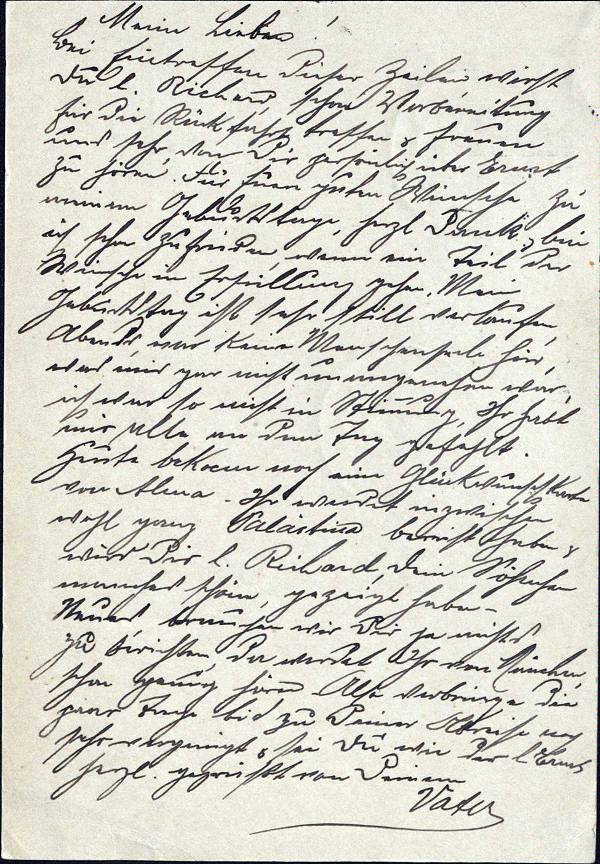 Meine Lieben!
Bei Eintreffen dieser Zeilen wirst
Du l. Richard, schon Vorbereitung
für die Rückfahrt treffen & freuen
uns sehr von Dir persönlich über Ernst
zu hören. Für Euere guten Wünsche zu
meinem Geburtstage, herzl Dank, bin
ich schon zufrieden, wenn ein Teil der
Wünsche in Erfüllung gehen. Mein
Geburtstag ist sehr still verlaufen,
Abends war keine Menschenseele hier,
was mir gar nicht unangenehm war,
ich war so nicht in Stimmung, Ihr habt
mir alle an dem Tag gefehlt.
Heute bekam noch eine Glückwunschkarte
von Alma. Ihr werdet inzwischen
wohl ganz Palästina bereist haben &
wird Dir l. Richard, Dein Söhnchen
manches schöne, gezeigt haben -
Neues brauchen wir Dir ja nichts
zu berichten, da werdet Ihr von
schon genug hören. Also verbringe die
paar Tage bis zu Deiner Abreise noch
sehr vergnügt & sei Du wie der l. Ernst
herzl. gegrüßt von Deinem
Vater